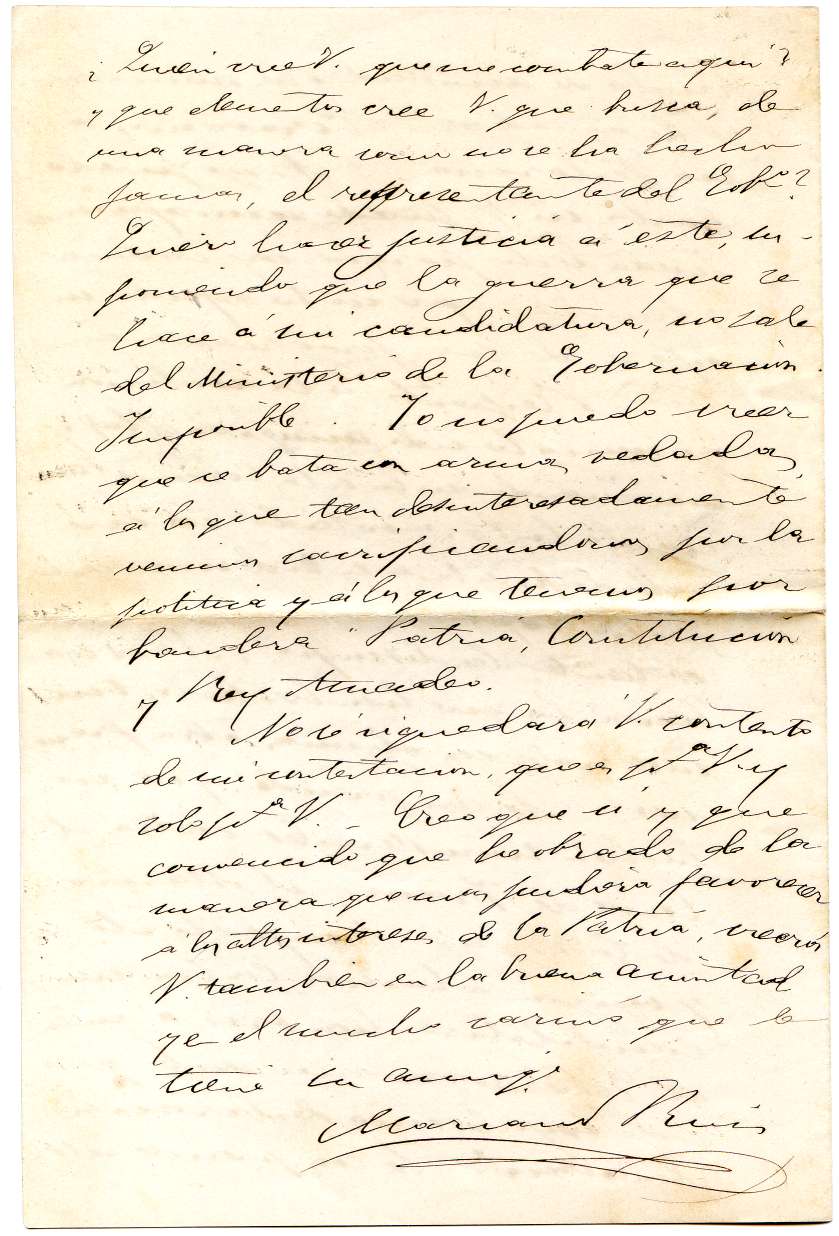 ¿Quién cree V. que me combate aquí?
y que elementos cree V. que busca, de
una manera como no se ha hecho
jamas, el representante del Gobno?
Quiero hacer justicia á este, su-
poniendo que la guerra que se
hace á mi candidatura, no sale
del Ministerio de la Gobernación.
Imposible. Yo no puedo creer
que se bata con armas vedadas,
á los que tan desinteresadamente
venimos sacrificandonos por la
política y á los que tenemos por
bandera Patria, Constitución
y Rey Amadeo.
No sé si quedará V. contento
de mi contestacion, que es pª V. y
solo pª V. _ Creo que si y que
convencido que he obrado de la
manera que mas pudiera favorecer
á los altos intereses de la Patria, creerá
V. tambien en la buena amistad
y en el mucho cariño que le
tiene su amigo
Mariano Ruiz